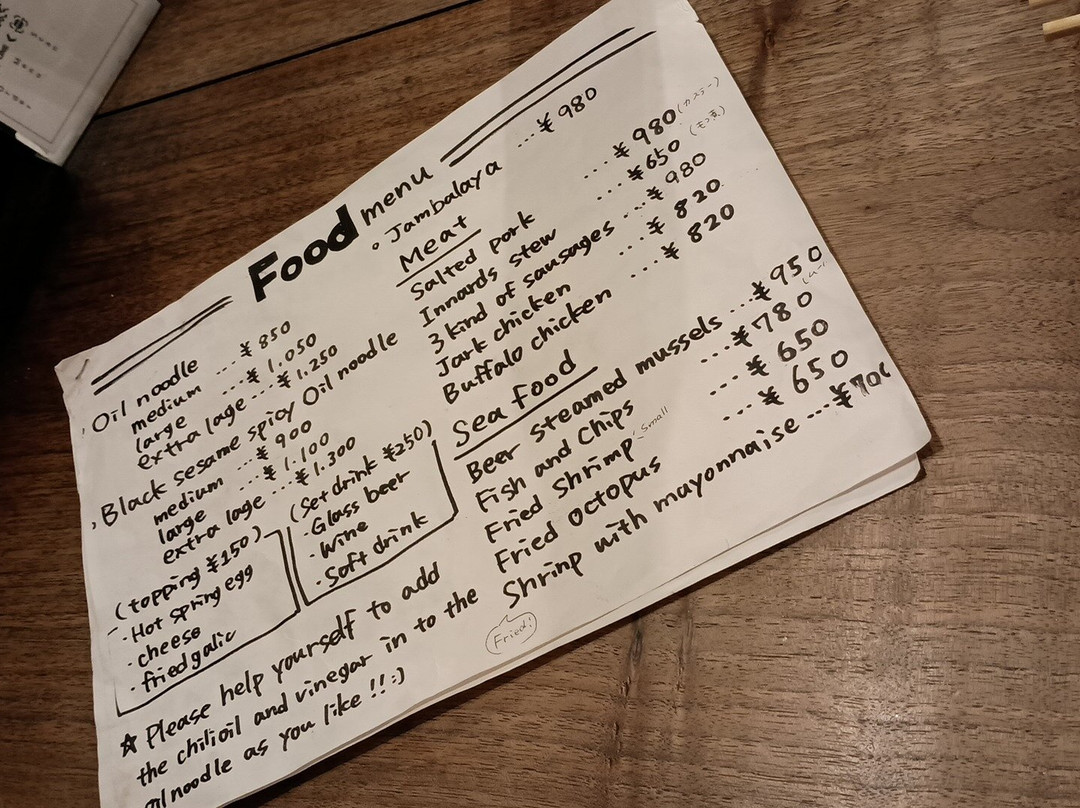 Food menu
Oil noodle
medium ...¥850
large ...¥1.050
extra lage ...¥1.250
Black sesame spicy Oil noodle
medium ...¥900
large ...¥1.100
extra lage ...¥1.300
(topping ¥150)
・Hot spring egg
・cheese
・fried galic
(Set drink ¥250)
・Glass beer
・Wine
・Soft drink
☆ Please help yourself to add
the chilioil and vinegar in to the
oil noodle as you like !! :)
。Jambalaya ...¥980
Meat
Salted pork ...¥980 (カスラー)
Innards stew ...¥650 (モツ煮)
3 kind of sausages ...¥980
Jark chicken ...¥820
Buffalo chicken ...¥820
Sea food
Beer steamed mussels ...¥950
Fish and Chips ...¥780
Fried Shrimp (small ...¥650
Fried octopus ...¥650
Shrinp with mayonnaise ...¥700
(Fried!)